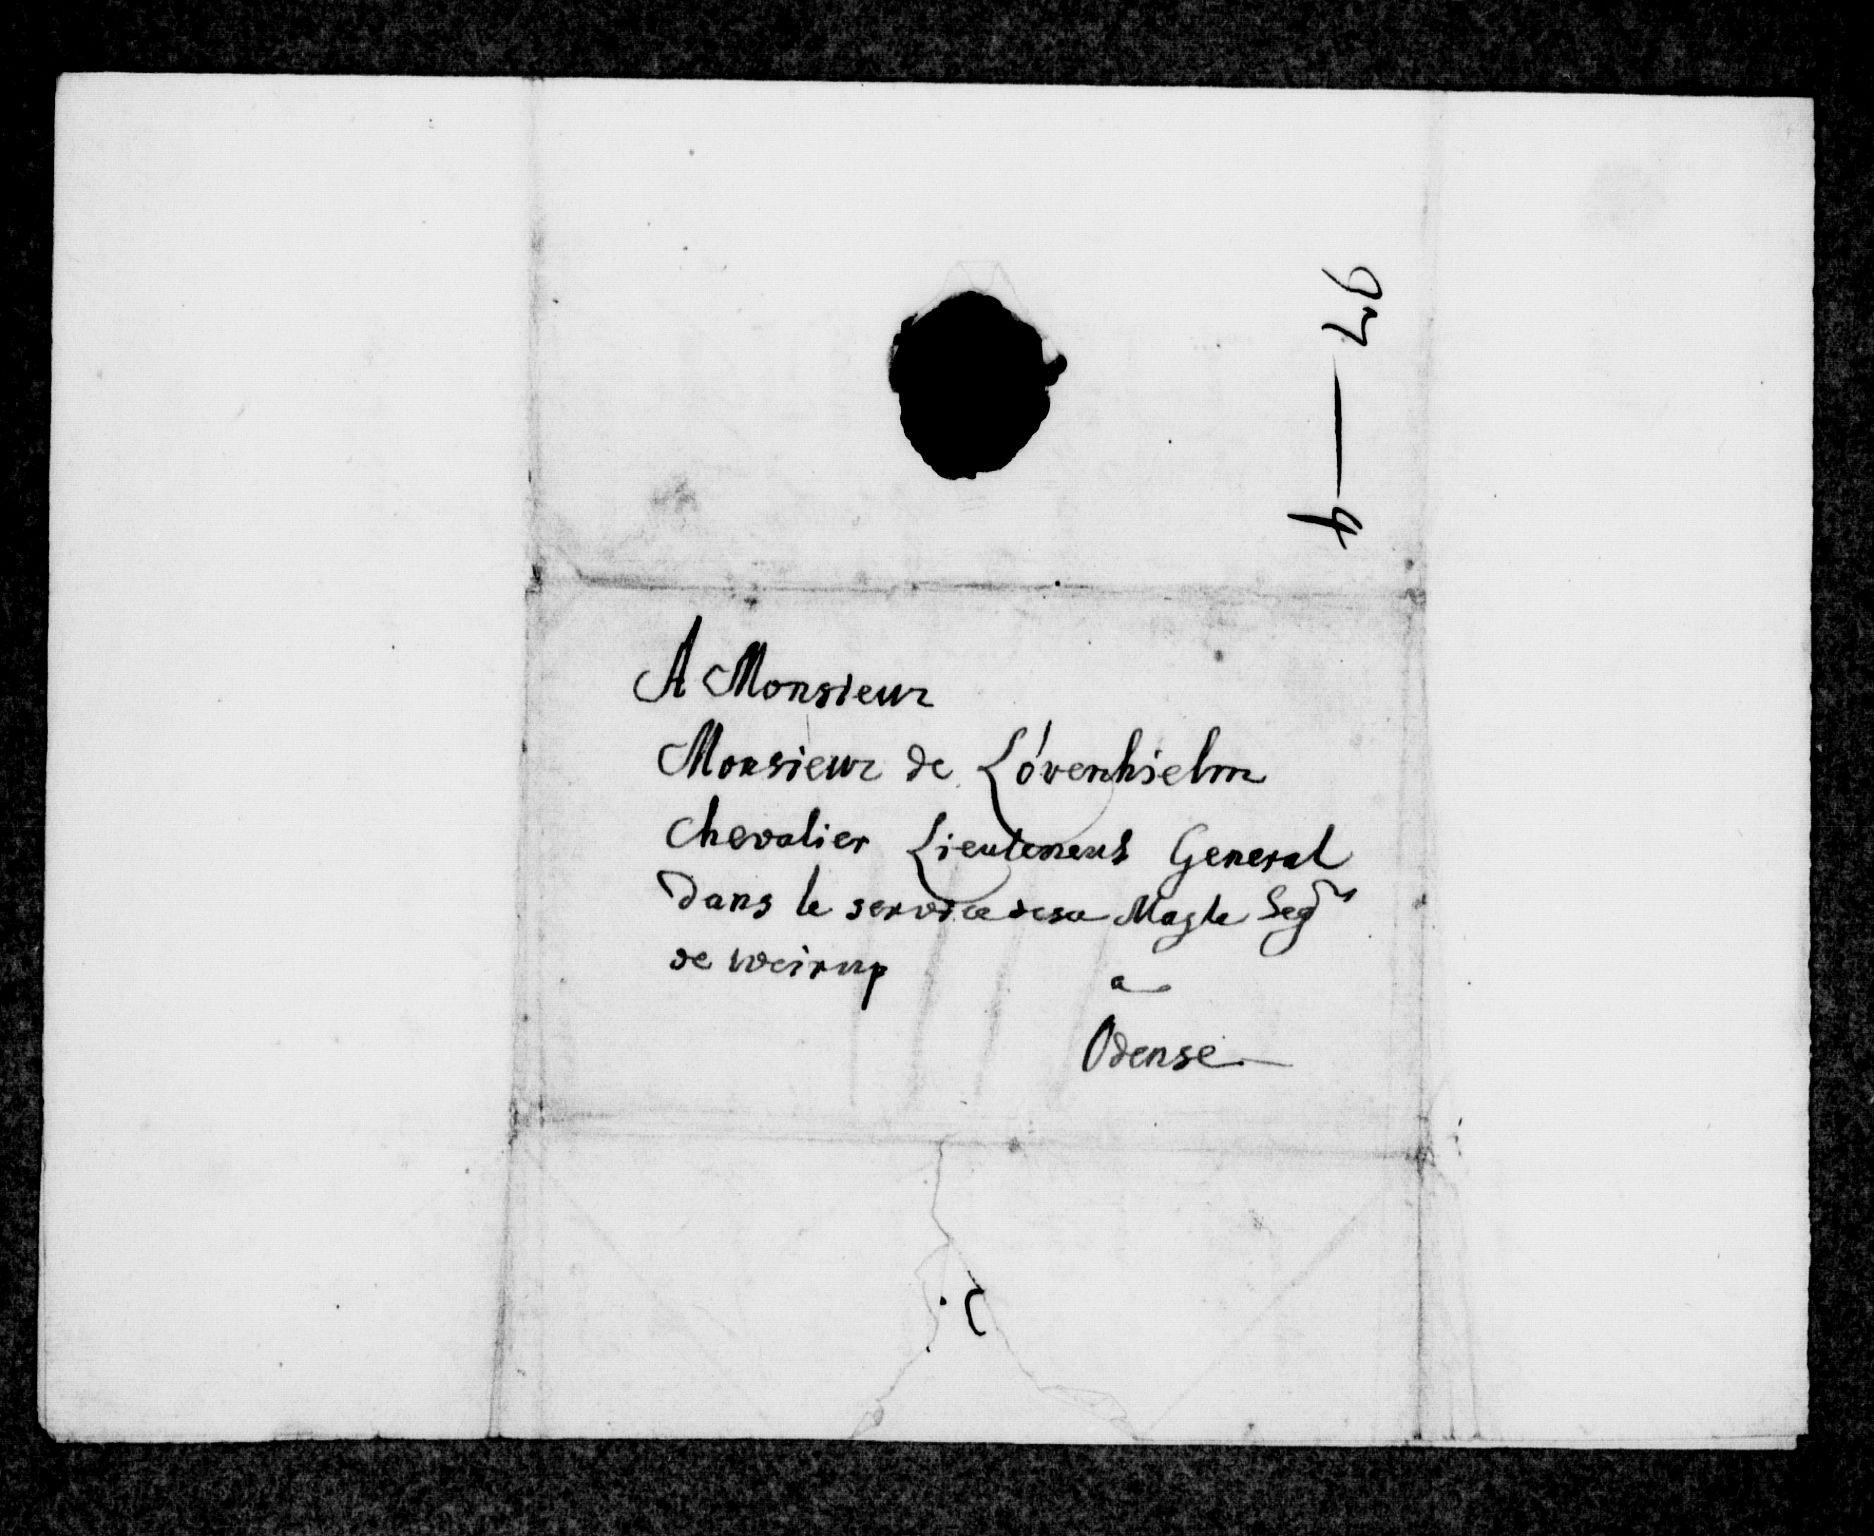 97 — 4
A Monsieur
Monsieur de Lövenhielm
Chevalier Lieutenent General
Dans le service de sa Majte Segr
de weirup
a
Odense